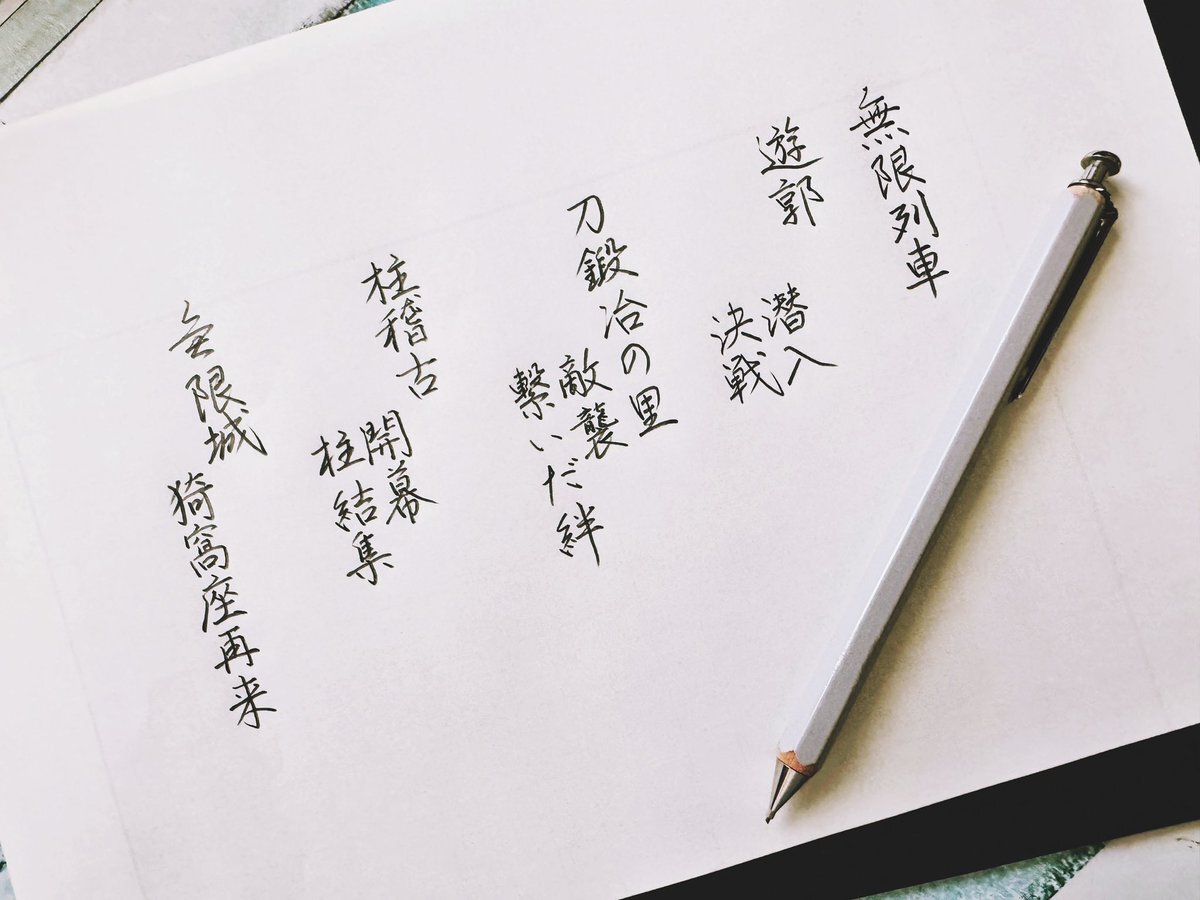 無限列車
遊郭
潜入
決戦
刀鍛冶の里
敵襲
繋いだ絆
柱稽古
開幕
柱結集
無限城
猗窩座再来